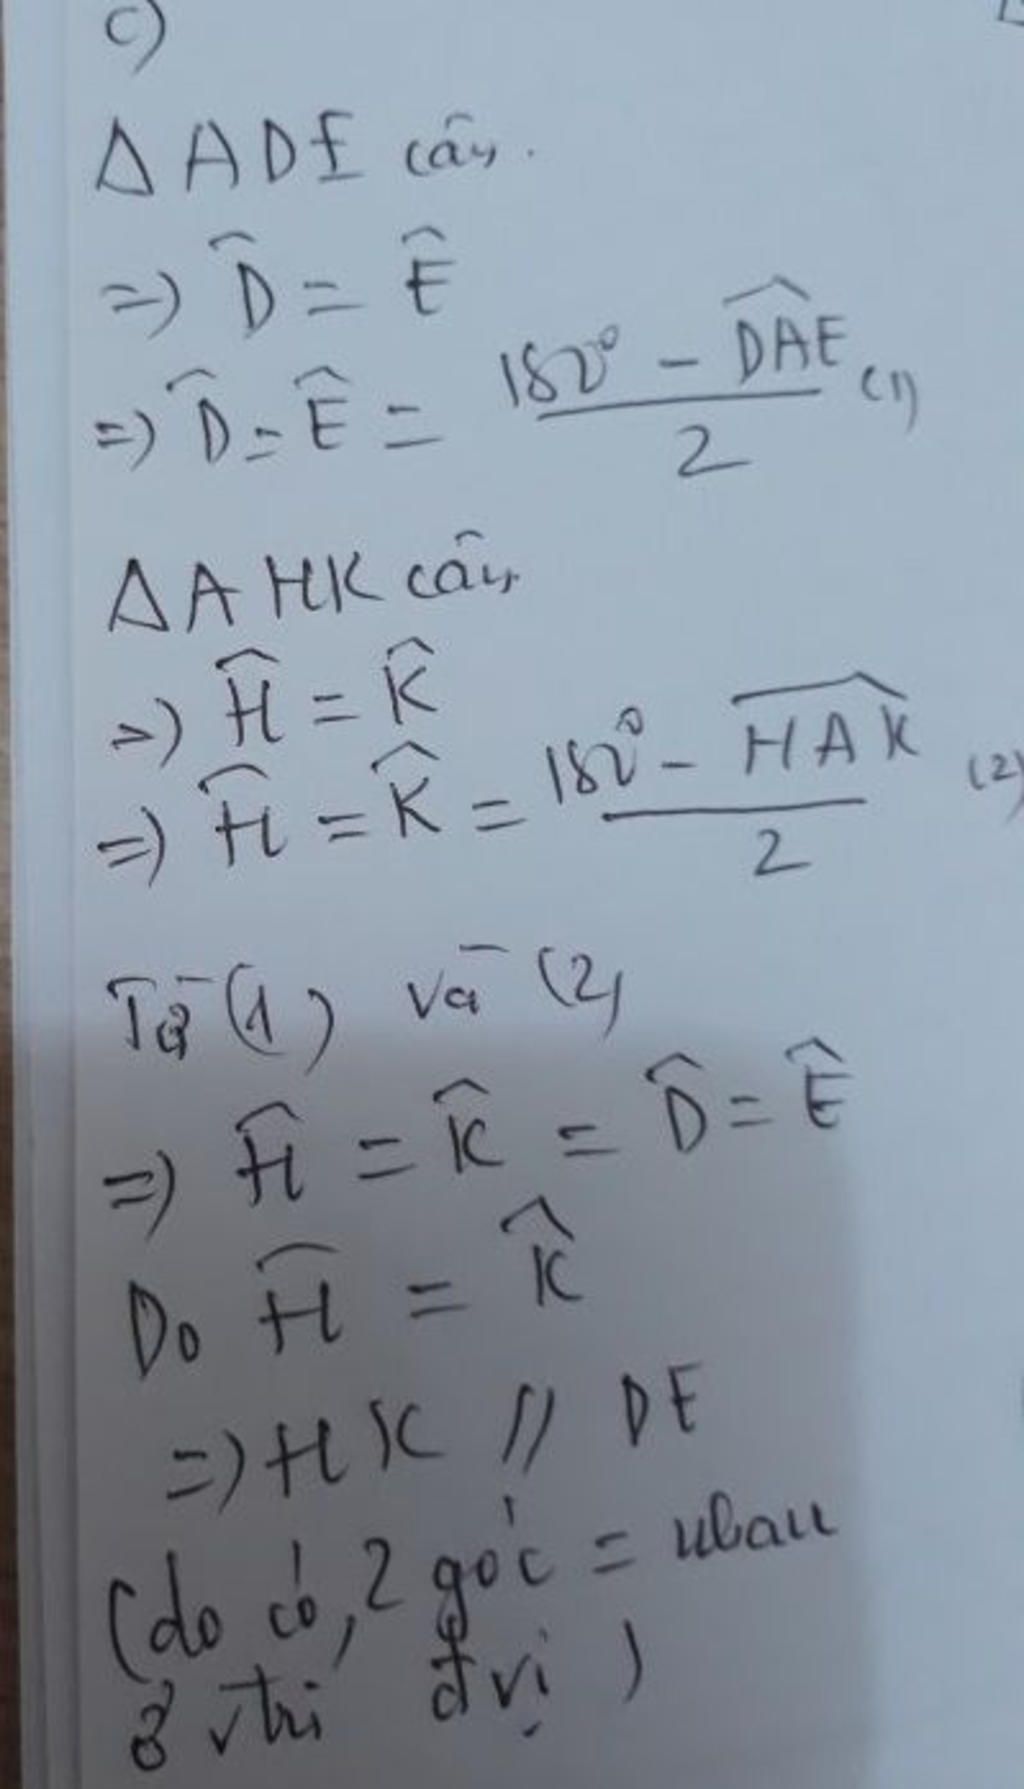 c)
Δ ADE cân.
=> D̂ = Ê
=> D̂ = Ê = (180° - D̂AE)/2 (1)
Δ AHK cân
=> Ĥ = K̂
=> Ĥ = K̂ = (180° - HÂK)/2 (2)
Từ (1) và (2)
=> Ĥ = K̂ = D̂ = Ê
Do Ĥ = K̂
=> HK // DE
(do có, 2 góc = nhau
ở vtrí đvị)